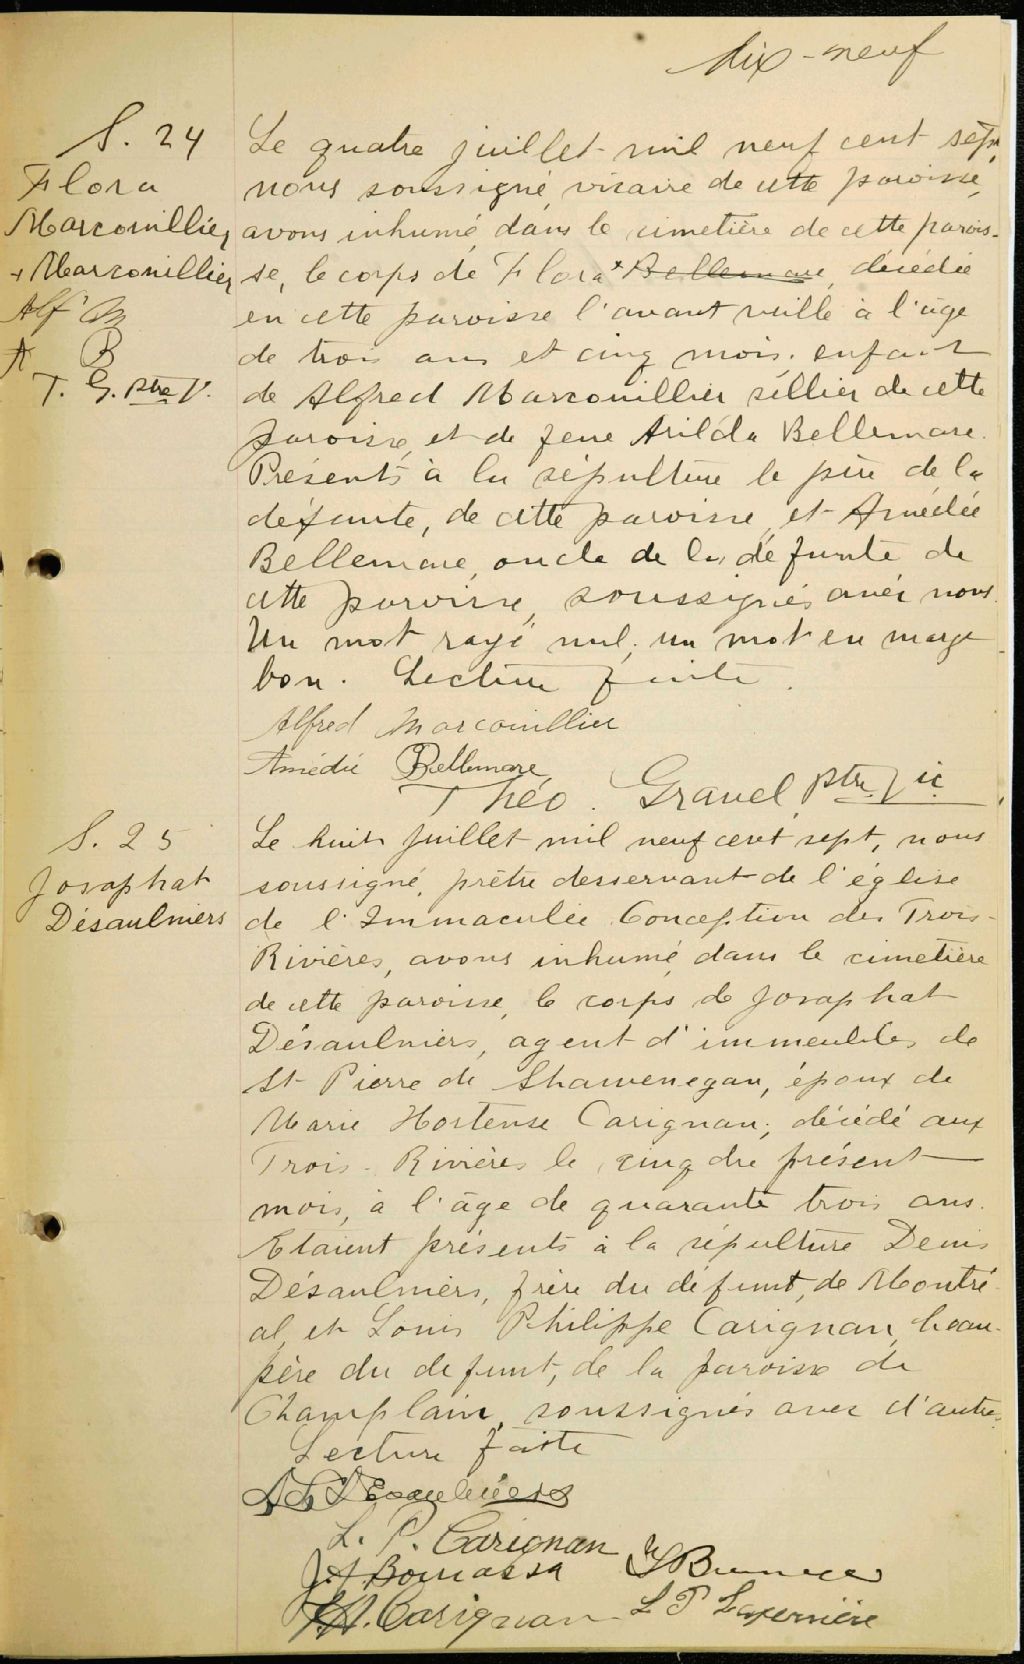 dix-neuf
S. 24
Flora
Marcouillier
+ Marcouillier
Alf M
A B
T. G. ptre V.
Le quatre juillet mil neuf cent sept,
nous soussigné, vicaire de cette paroisse,
avons inhumé dans le cimetière de cette parois-
se, le corps de Flora + Bellemare, décédée
en cette paroisse l'avant veille à l'âge
de trois ans et cinq mois, enfant
de Alfred Marcouillier sellier de cette
paroisse, et de feue Arilda Bellemare.
Présents à la sépulture le père de la
défunte, de cette paroisse, et Amédée
Bellemare, oncle de la défunte de
cette paroisse, soussignés avec nous.
Un mot rayé nul, un mot en marge
bon. Lecture faite.
Alfred Marcouillier
Amédée Bellemare
Théo. Gravel, ptre Vic.
S. 25
Josaphat
Désaulniers
Le huit juillet mil neuf cent sept, nous
soussigné, prêtre desservant de l'église
de l'Immaculée Conception des Trois-
Rivières, avons inhumé dans le cimetière
de cette paroisse, le corps de Josaphat
Désaulniers, agent d'immeubles de
St Pierre de Shawenegan, époux de
Marie Hortense Carignan, décédé aux
Trois-Rivières le cinq du présent
mois, à l'âge de quarante trois ans.
Etaient présents à la sépulture Denis
Désaulniers, frère du défunt, de Montré-
al, et Louis Philippe Carignan, beau-
père du défunt, de la paroisse de
Champlain, soussignés avec d'autres.
Lecture faite
Désaulniers
L. P. Carignan
J. A. Bourassa
Carignan L P Laferrière